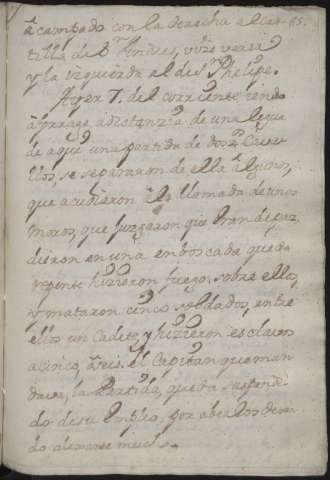 acampado con la derecha al Cas- 65.
tillo de Sn. Andres, vice versa
y la izquierda al de Sn. Phelipe.
Ayer 7. del corriente iendo
à forrage à distanzia de una legua
de aqui una partida de doze Cava
llos, se separaron de ella algunos,
que acudieron à la llamada de unos
moros, que juzgaron que eran de paz,
dieron en una emboscada que de
repente hizieron fuego sobre ellos,
y mataron cinco soldados, entre
ellos un Cadete, y hizieron esclavos
à cinco, ò seis. el Capitan que man
daba la Partida, queda suspendi
do de su Empleo, por averlos dexa
do alexarse mucho.